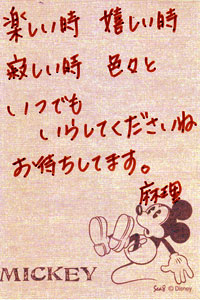 楽しい時 嬉しい時
寂しい時 色々と
いつでも
いらしてくださいね
お待ちしてます。
麻理
MICKEY
© Disney